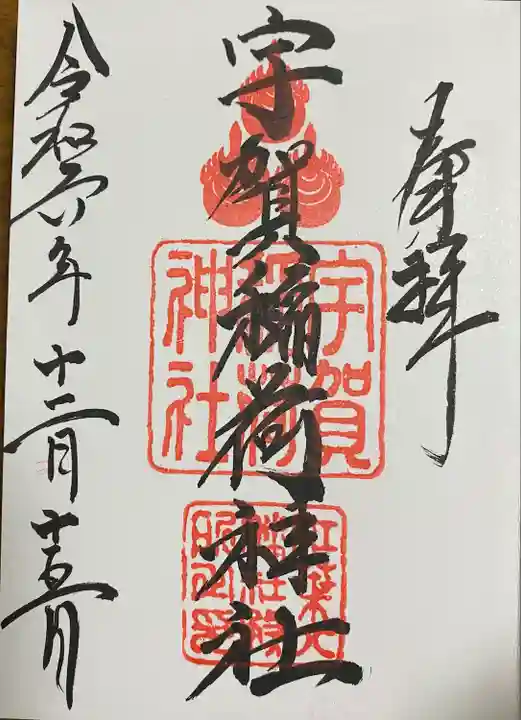 奉拝
宇賀稲荷神社
宇賀
稲荷
神社
令和六年十二月十五日